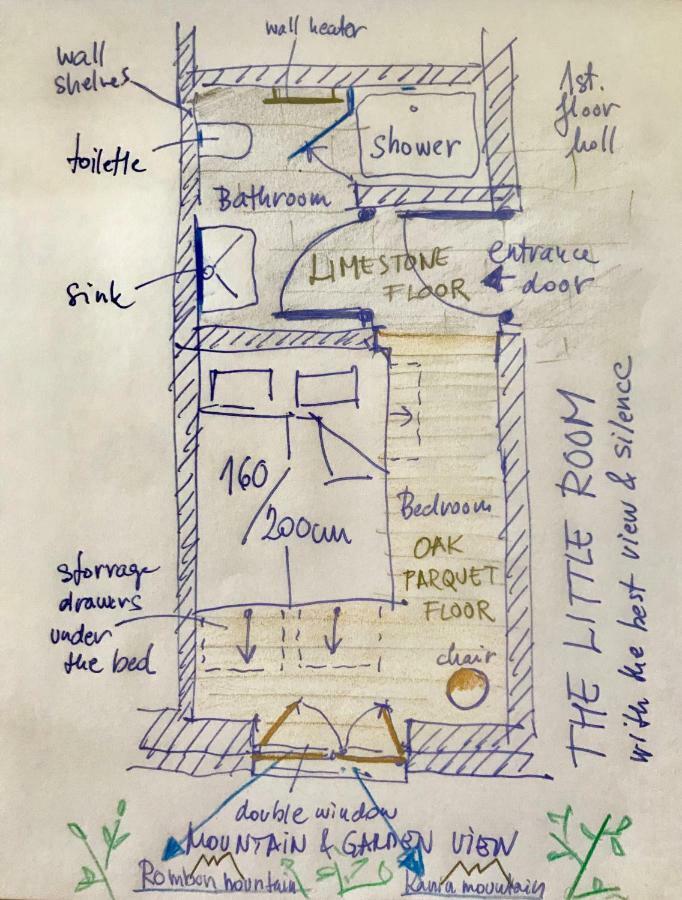 wall heater
wall
shelves
1st.
floor
holl
toilette
Shower
Bathroom
entrance
door
LIMESTONE
FLOOR
sink
160
/200cm
Bedroom
OAK
PARQUET
FLOOR
storrage
drawers
under
the bed
chair
THE LITTLE ROOM
with the best view & silence
double window
MOUNTAIN & GARDEN VIEW
Rombon mountain
mountain